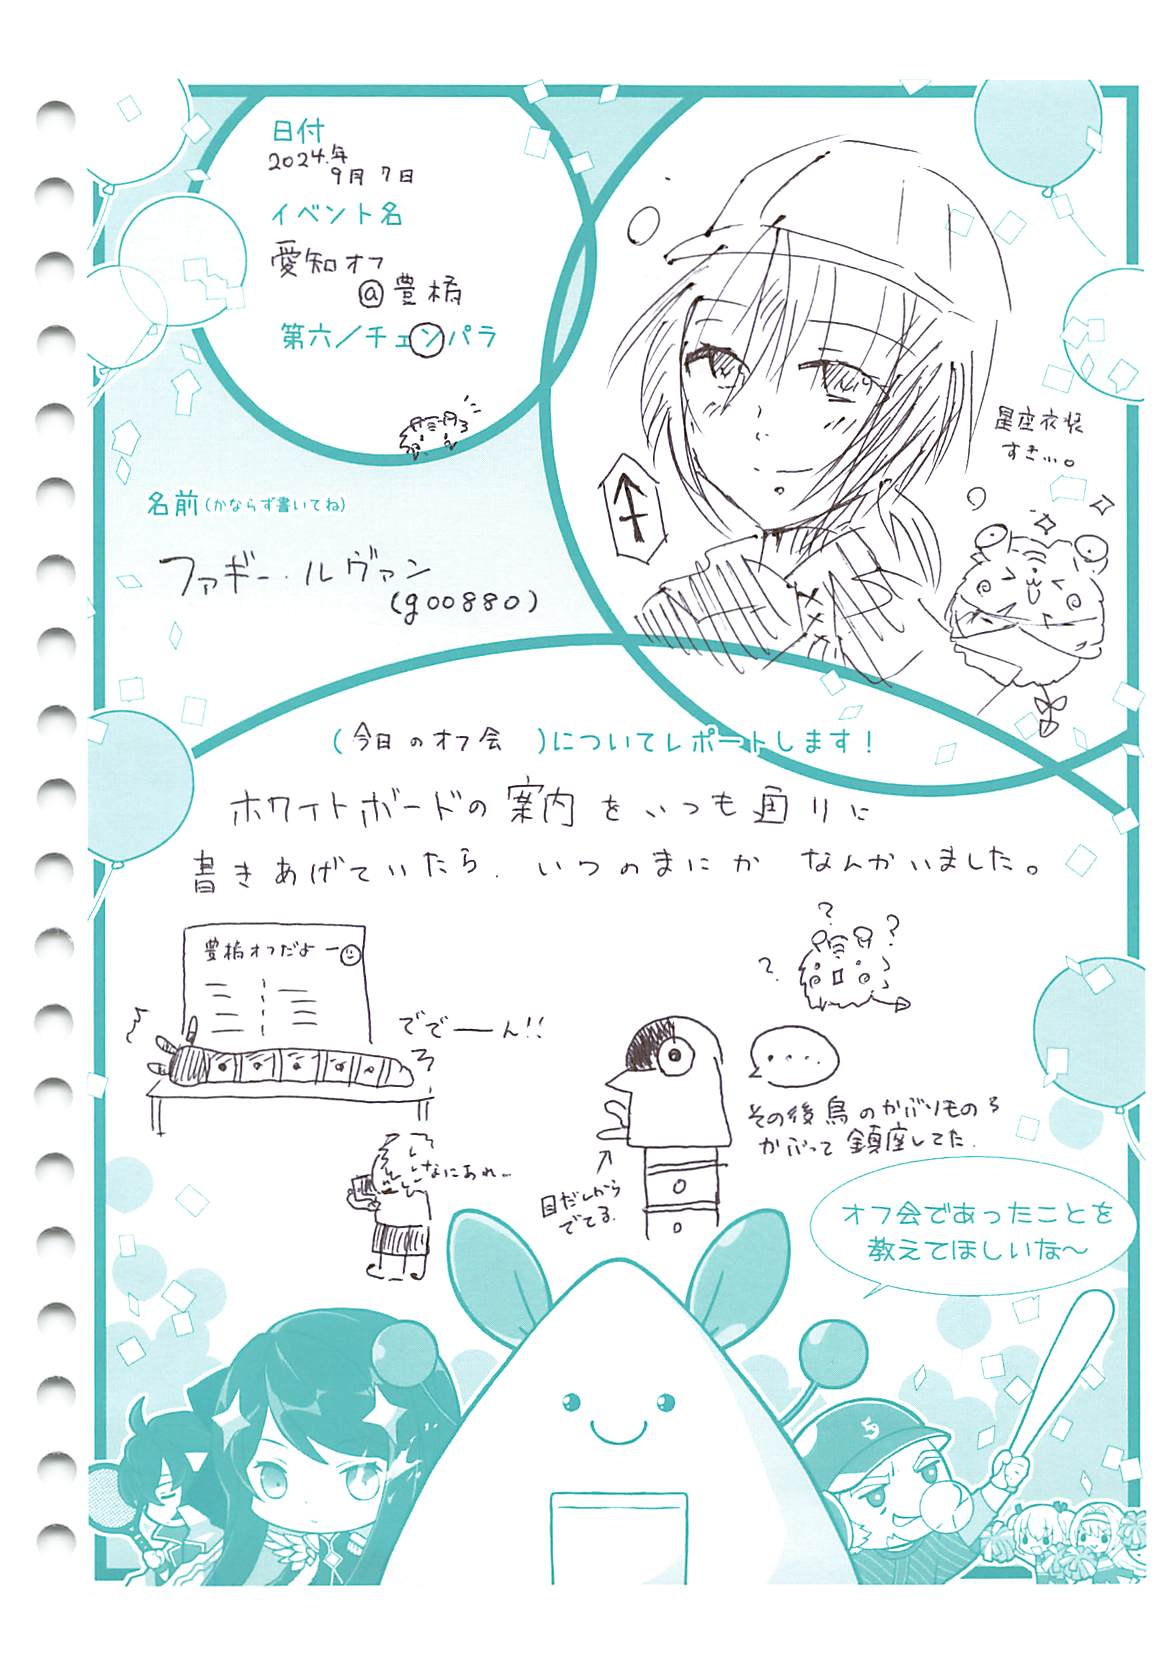 日付
2024年
9月7日
イベント名
愛知オフ
@豊橋
第六/チェンパラ
星座衣装
すき…。
名前(かならず書いてね)
ファギー・ルヴァン
(goo880)
(今日のオフ会)についてレポートします!
ホワイトボードの案内をいつも通りに
書きあげていたら、いつのまにか なんかいました。
豊橋オフだよー
ででーーん!!
なにあれ…
? ? ?
....
その後鳥のかぶりものを
かぶって鎮座してた.
目だしから
でてる.
オフ会であったことを
教えてほしいな〜